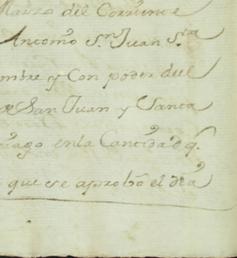 Marzo del Corriente
Antonio Sn. Juan Sta
ombre y Con poder del
San Juan y Santa
uago en la Cantidad q.
que se aprobó el dia